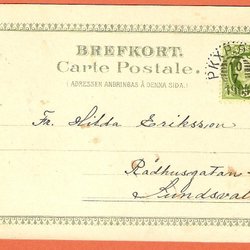 BREFKORT.
Carte Postale.
(ADRESSEN ANBRINGAS Å DENNA SIDA.)
PKXP
Fr. Hilda Eriksson
Rådhusgatan
Sundsvall